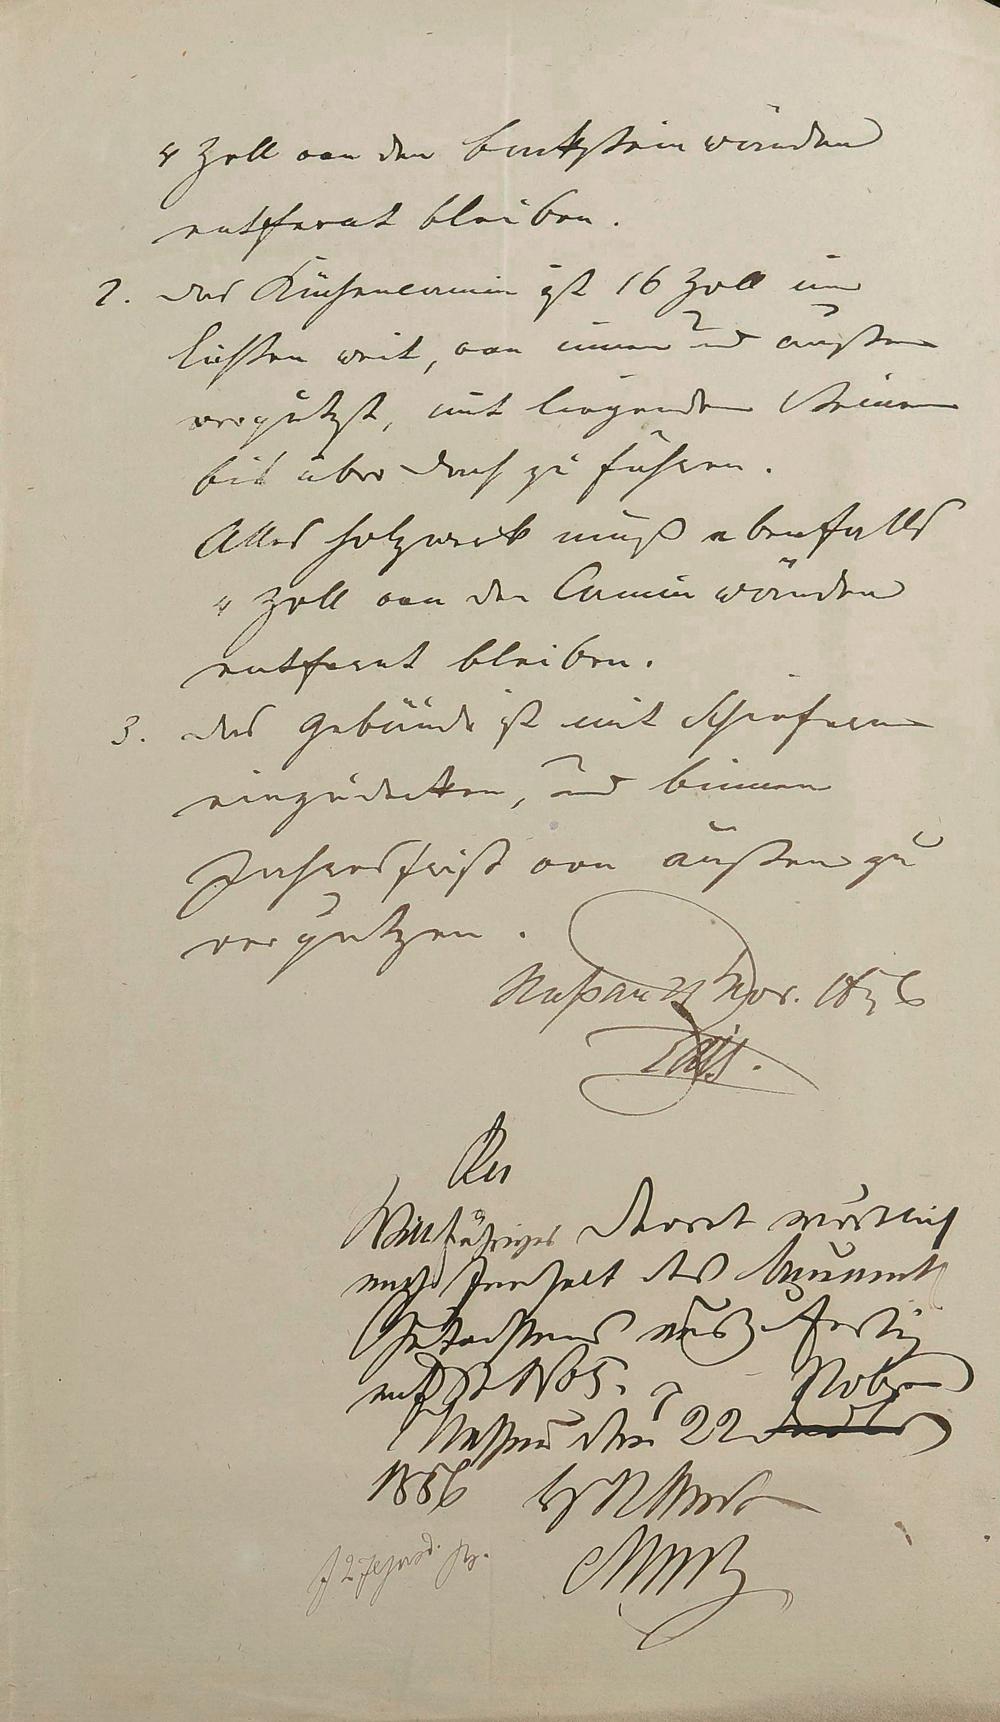 4 Zoll von den backstein wänden
entfernt bleiben.
2. das Küchencamin ist 16 Zoll im
lichten weit, von innen und außen
verputzt, mit liegenden Steinen
bis über dach zu führen.
Alles holzwerk muß ebenfalls
4 Zoll von den Camin wänden
entfernt bleiben.
3. das Gebäude ist mit Schiefern
einzudecken, und binnen
Jahresfrist von außen zu
verputzen.
Naßau 21 Nov. 1856
Res
Willfähriges decret
nach Inhalt des Bauamt
Gutachtens
auf
Nobr
Nassau den 22
1856